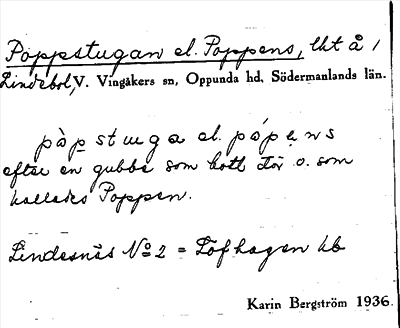 Poppstugan el. Poppens, lht å /
Lindebol, V. Vingåkers sn, Oppunda hd, Södermanlands län.
påpstuga el. påpens
efter en gubbe som hott där o. som
kallades Poppen.
Lindesnäs No 2 = Löfhagen kb
Karin Bergström 1936.